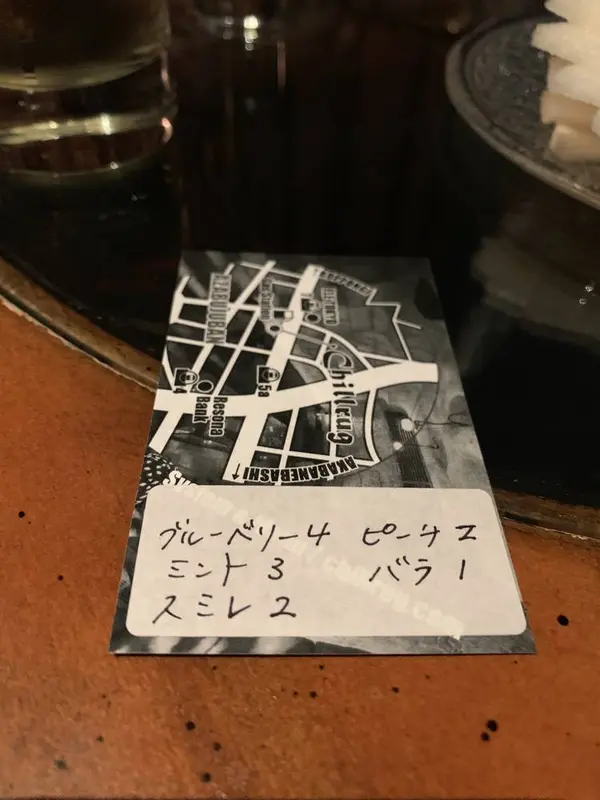 AZABUJUBAN
Chillrug
5a
4
Resona
Bank
AKABANEBASHI→
ブルーベリー4 ピーチ2
ミント 3 バラ 1
スミレ 2